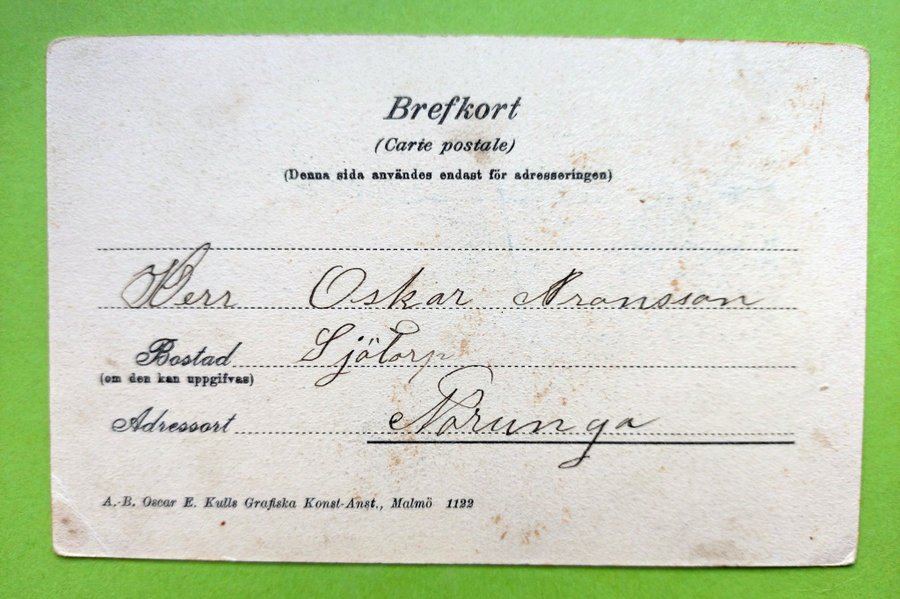 Brefkort
(Carte postale)
(Denna sida användes endast för adresseringen)
Herr Oskar Aronsson
Bostad Sjötorp
(om den kan uppgifvas)
Adressort Norunga
A.-B. Oscar E. Kulls Grafiska Konst-Anst., Malmö 1122